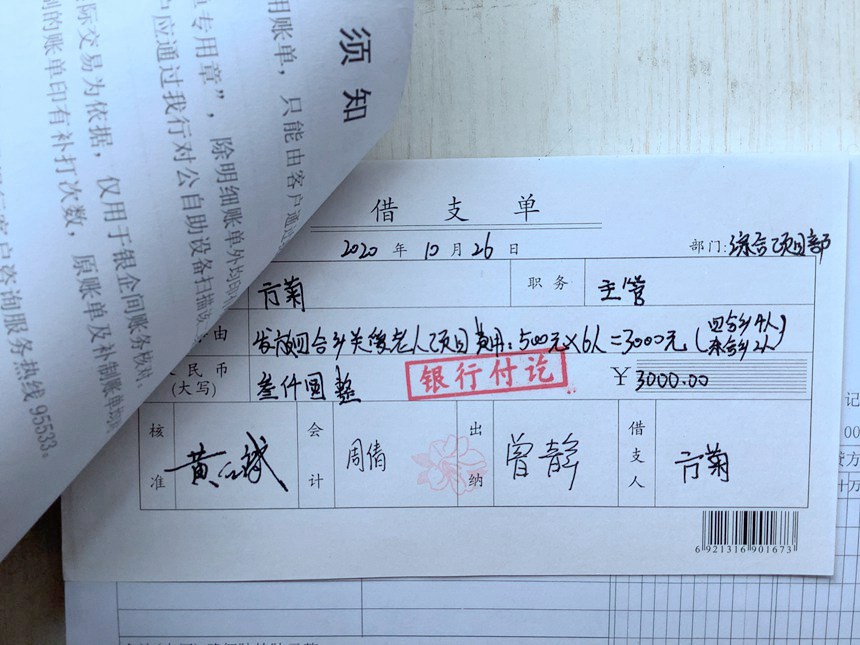 须知
用账单，只能由客户通
专用章”，除明细账单外均
户应通过我行对公自助设备扫描
际交易为依据，仅用于银企间账务核对
别的账单印有补打次数，原账单及补制账单均
客户咨询服务热线 95533。
借 支 单
2020 年 10 月 26 日 部门：综合项目部
方菊 职务 主管
由 发放四合乡关爱老人项目费用：500元×6人=3000元（四合乡4人 来合乡2人）
民币（大写） 叁仟圆整 ￥3000.00
银行付讫
核准 会计 周倩 出纳 曾静 借支人 方菊
6 921316 901673
记
贷方
十万